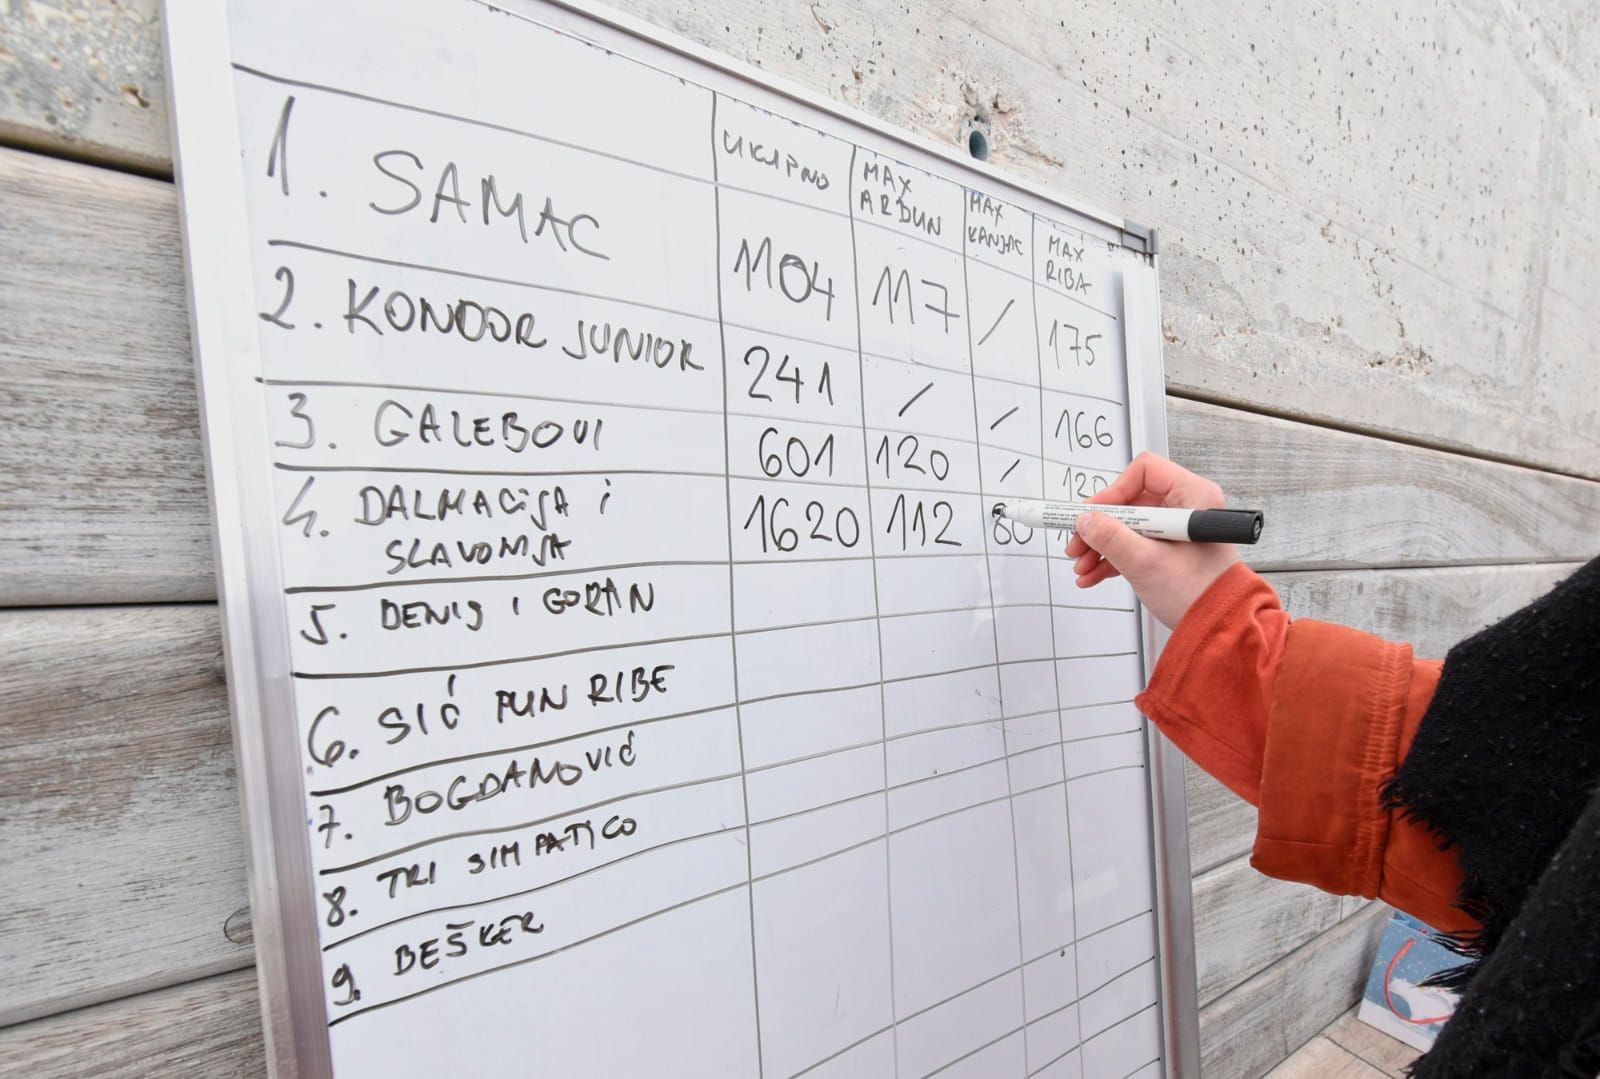 UKUPNO MAX ARBUN MAX KANJAC MAX RIBA
1. SAMAC 1104 117 / 175
2. KONDOR JUNIOR 241 / / 166
3. GALEBOVI 601 120 / 120
4. DALMACIJA i SLAVONIJA 1620 112 80
5. DENIS I GORAN
6. SIĆ PUN RIBE
7. BOGDANOVIĆ
8. TRI SIMPATICO
9. BEŠKER